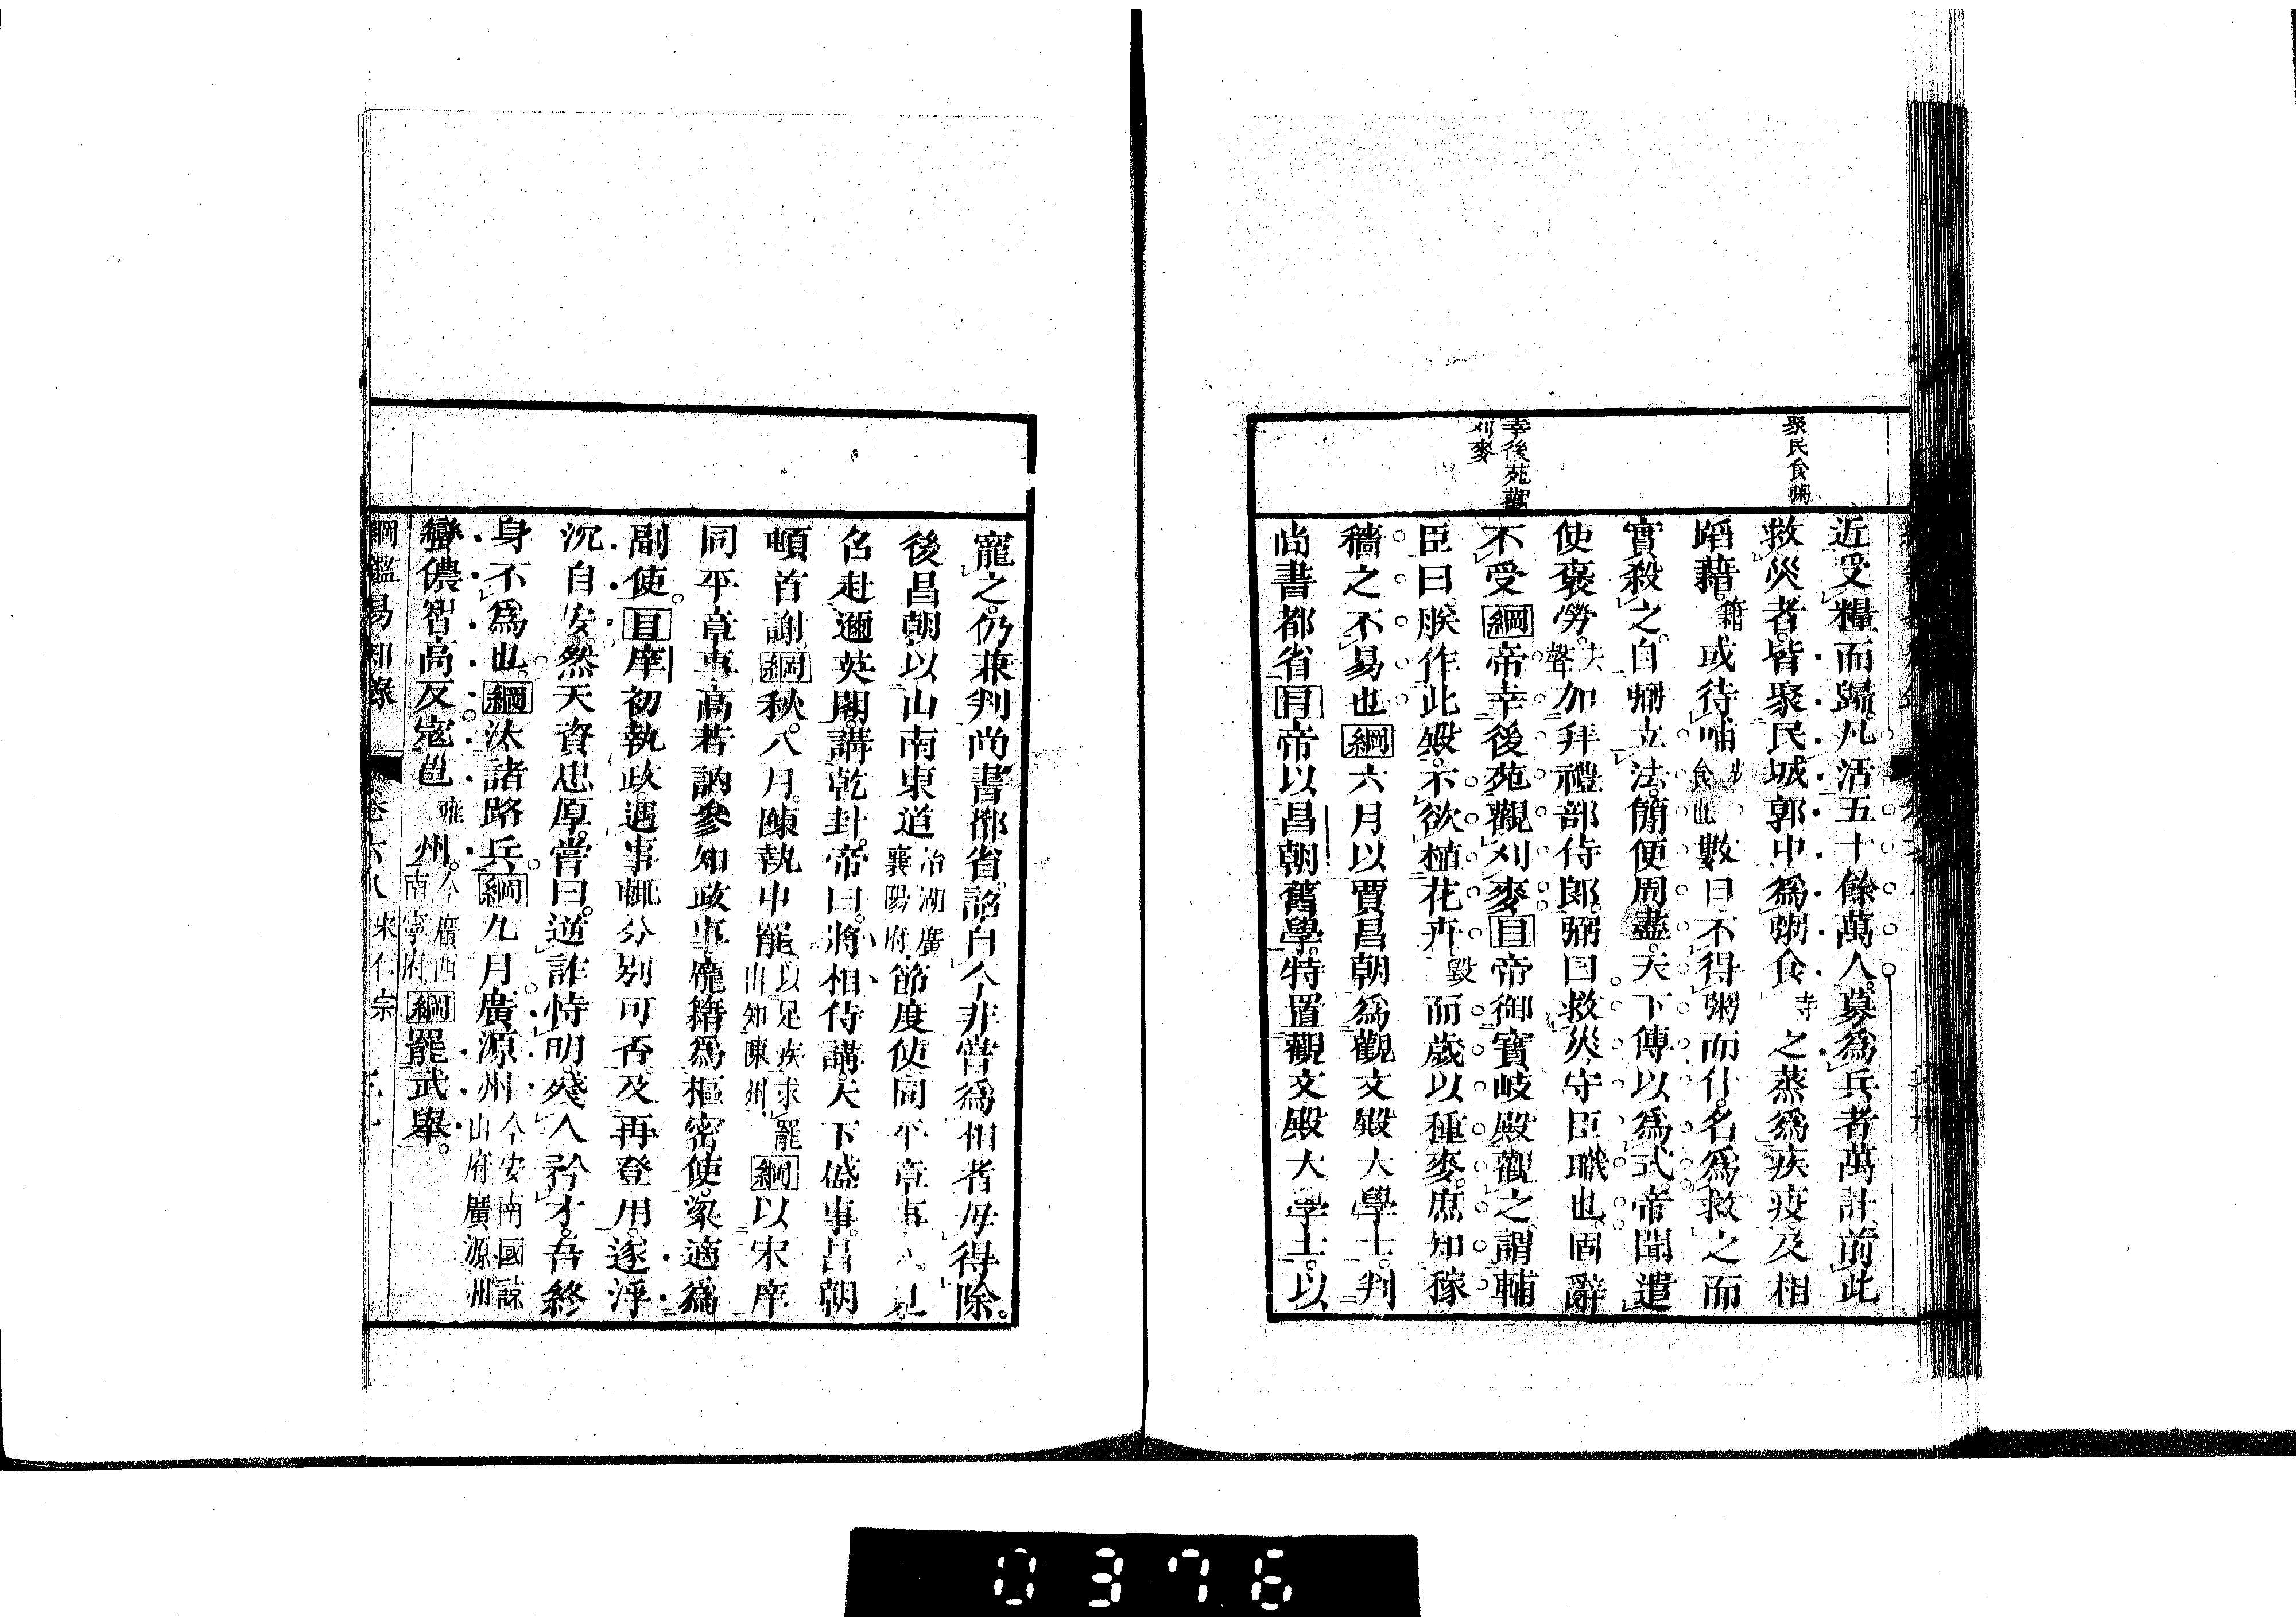 聚民食粥
近受糧而歸。凡活五十餘萬人。募爲兵者萬計。前此
救災者。皆聚民城郭中。爲粥食寺之蒸爲疾疫。及相
蹈藉。籍或待哺食也數日不得粥而仆。名爲救之而
實殺之。自弼立法。簡便周盡。天下傳以爲式。帝聞遣
使褒勞。去聲加拜禮部侍郎。弼曰救災守臣職也。固辭
幸後苑觀
刈麥
不受綱帝幸後苑觀刈麥目帝御寶岐殿觀之。謂輔
臣曰朕作此殿。不欲植花卉。毀而歲以種麥。庶知稼
穡之不易也綱六月以賈昌朝爲觀文殿大學士。判
尚書都省目帝以昌朝舊學。特置觀文殿大學士。以
寵之。仍兼判尚書都省。詔自今非嘗爲相者毋得除。
後昌朝以山南東道治湖廣襄陽府節度使同平章事入見。
召赴邇英閣。講乾卦。帝曰。將相侍講。天下盛事。昌朝
頓首謝。綱秋。八月。陳執中罷。以足疾求罷出知陳州。綱以宋庠
同平章事高若訥參知政事龐籍爲樞密使。梁適爲
副使。目庠初執政。遇事輒分別可否。及再登用。遂浮
沉自安。然天資忠厚。嘗曰。逆詐恃明。殘人矜才。吾終
身不爲也。綱汰諸路兵。綱九月廣源州今安南國諒山府廣源州
蠻儂智高反寇邕雍州。今廣西南寧府綱罷武舉。
綱鑑易知錄 卷六八 宋仁宗
0376